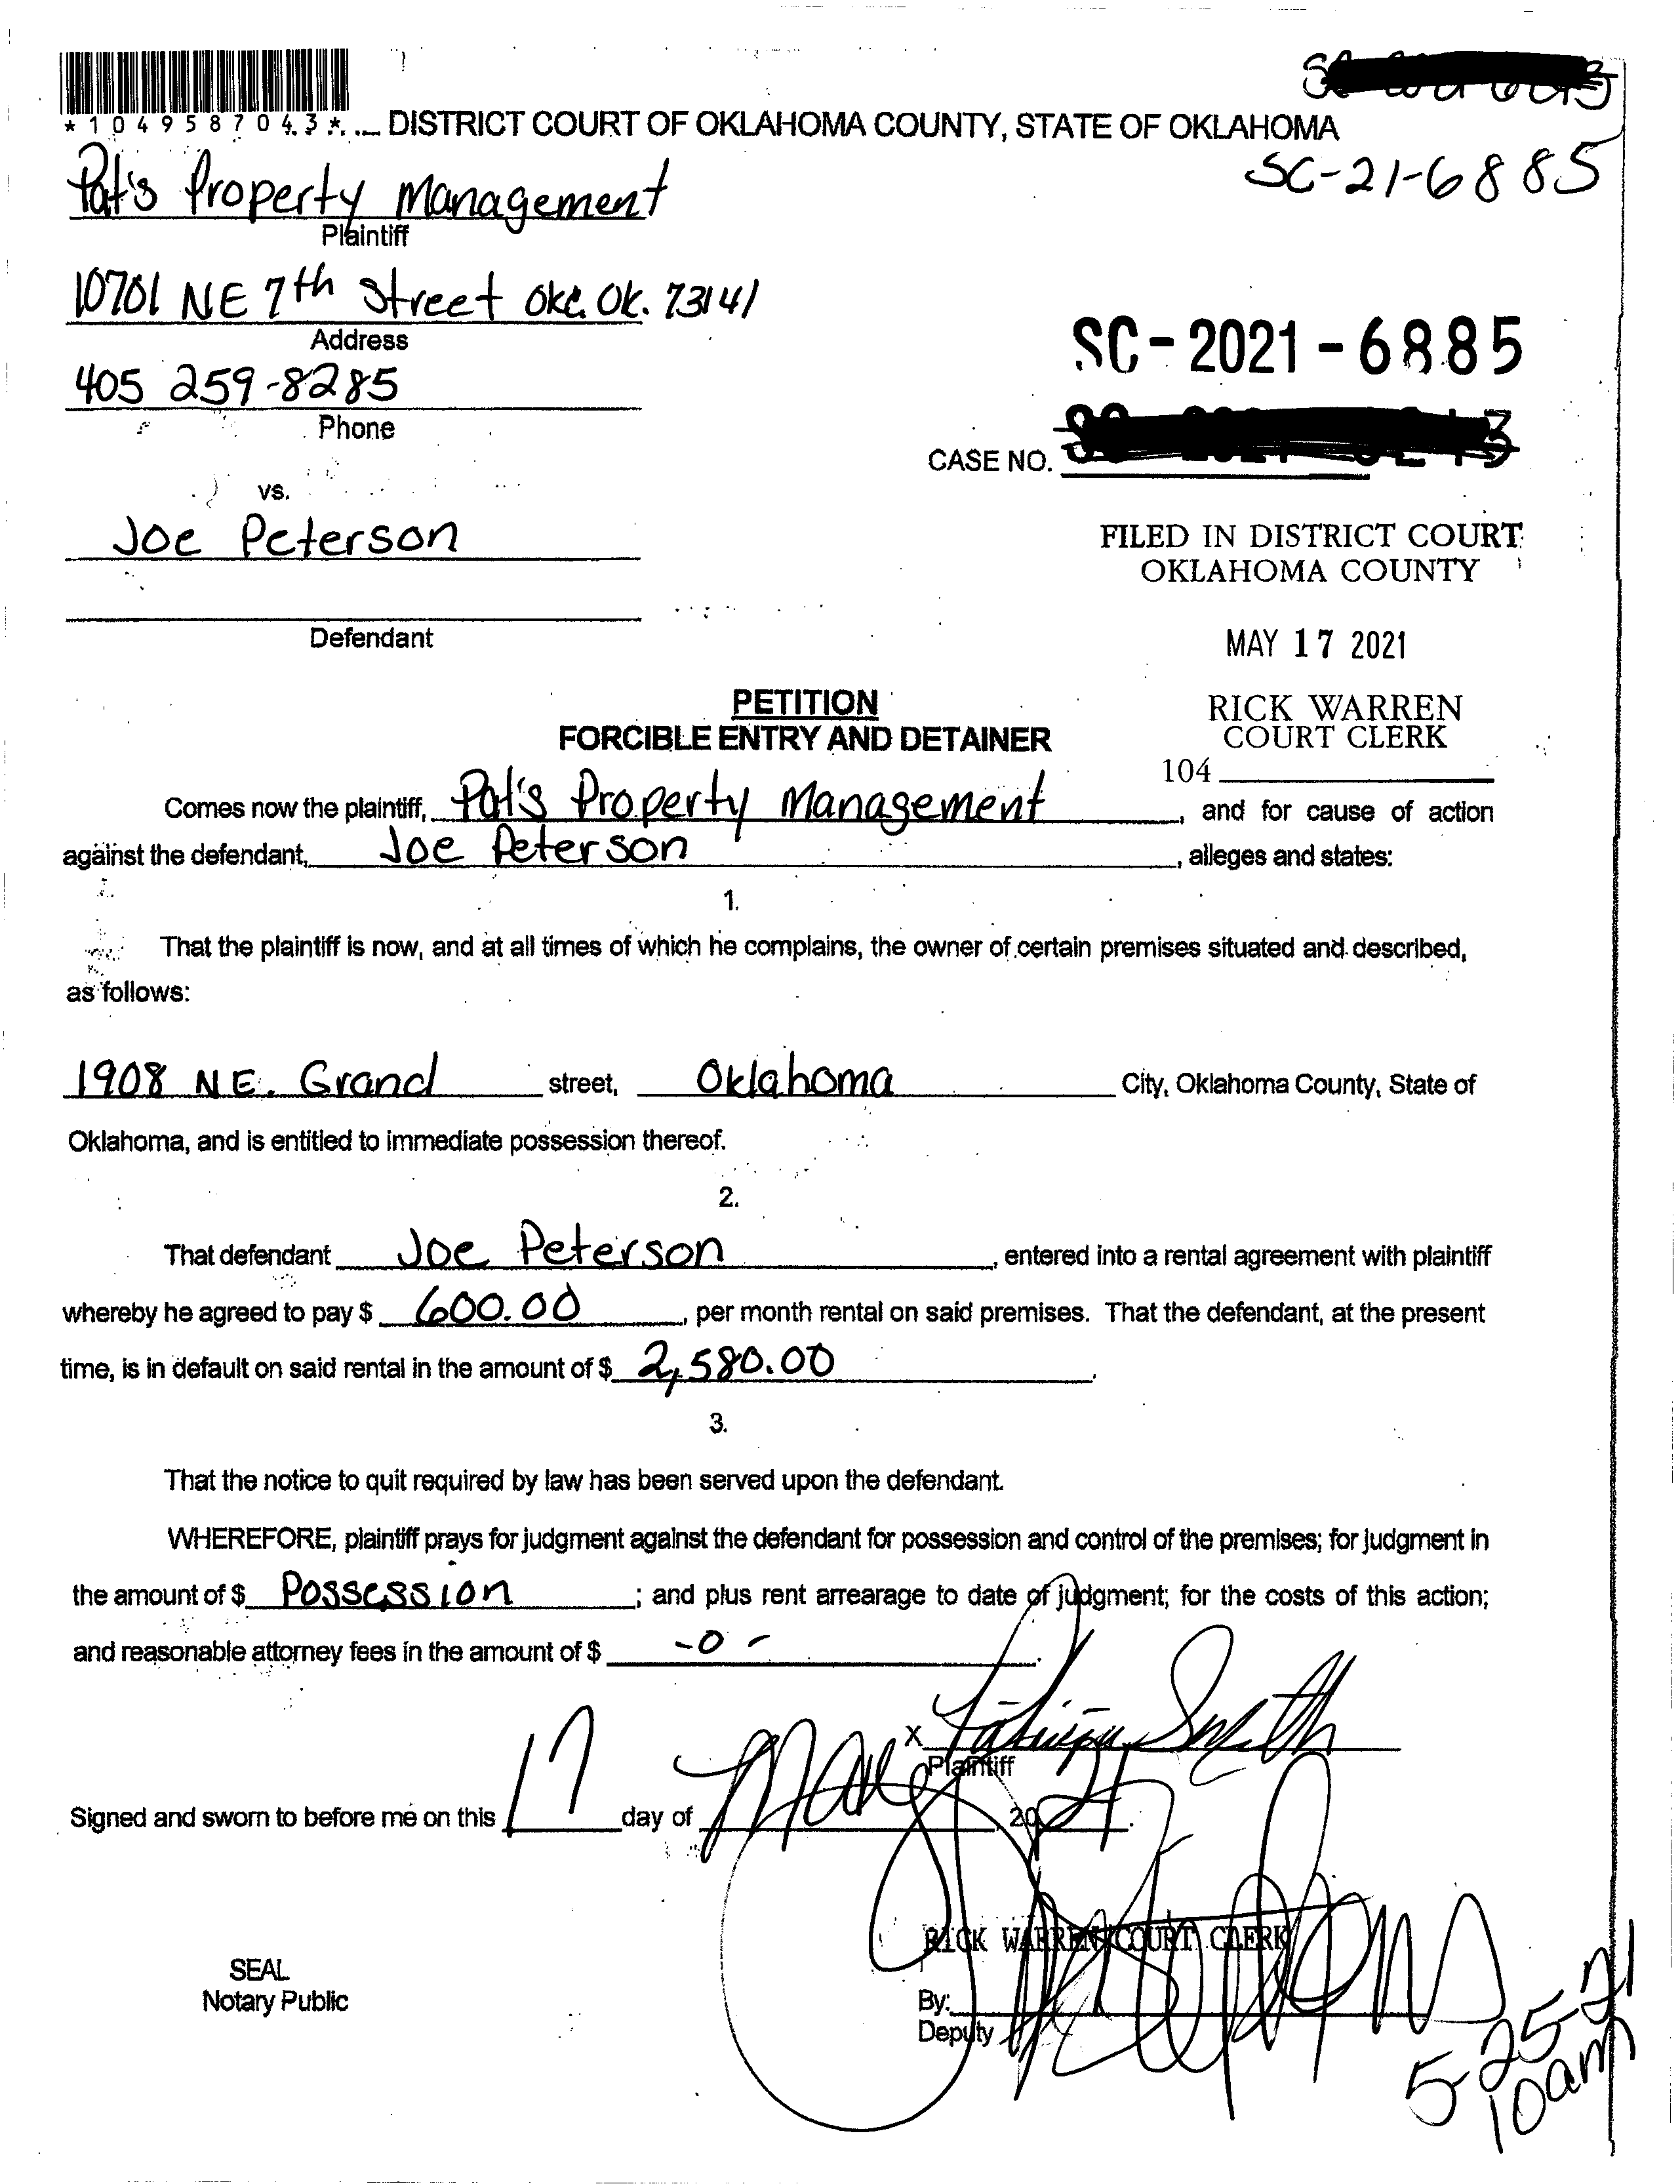 *1049587043* DISTRICT COURT OF OKLAHOMA COUNTY, STATE OF OKLAHOMA
SC-21-6885
Pat's Property Management
Plaintiff
10701 NE 7th Street Okc. Ok. 73141
Address
SC-2021-6885
405 259-8285
Phone
CASE NO.
vs.
Joe Peterson
Defendant
FILED IN DISTRICT COURT
OKLAHOMA COUNTY
MAY 17 2021
RICK WARREN
COURT CLERK
104
PETITION
FORCIBLE ENTRY AND DETAINER
Comes now the plaintiff, Pat's Property Management, and for cause of action
against the defendant, Joe Peterson, alleges and states:
1.
That the plaintiff is now, and at all times of which he complains, the owner of certain premises situated and described,
as follows:
1908 N.E. Grand street, Oklahoma City, Oklahoma County, State of
Oklahoma, and is entitled to immediate possession thereof.
2.
That defendant Joe Peterson, entered into a rental agreement with plaintiff
whereby he agreed to pay $ 600.00, per month rental on said premises. That the defendant, at the present
time, is in default on said rental in the amount of $ 2,580.00.
3.
That the notice to quit required by law has been served upon the defendant.
WHEREFORE, plaintiff prays for judgment against the defendant for possession and control of the premises; for judgment in
the amount of $ Possession; and plus rent arrearage to date of judgment; for the costs of this action;
and reasonable attorney fees in the amount of $ -0-.
X Smith
Plaintiff
Signed and sworn to before me on this 17 day of May, 2021.
RICK WARREN COURT CLERK
SEAL
Notary Public
By:
Deputy
5-25-21
10am